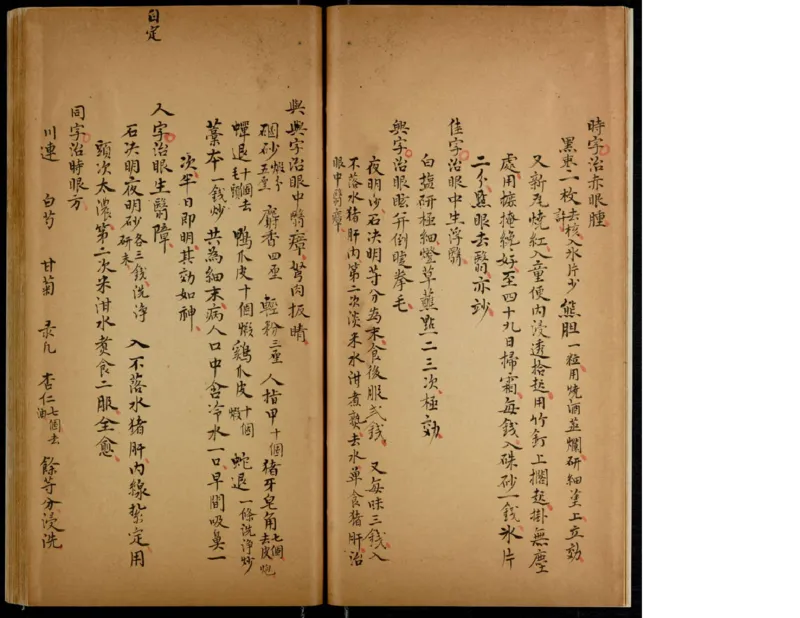 時字治赤眼腫
黑棗二枚去核入氷片少許 熊胆一粒用燒酒蓝爛研細塗上立効
又新瓦燒紅入童便內浸透拾起用竹釘上擱起掛無塵
處用蔴掩繞好至四十九日掃霜每錢入硃砂一錢氷片
二分點眼去翳亦妙
佳字治眼中生浮翳
白塩研極細燈草蘸點二三次極効
興字治眼眩弁倒睫拳毛
夜明沙石决明等分為末食後服弍錢 又每味三錢入
不落水猪肝內第二次淡米水泔煮熟去水單食猪肝治
眼中翳瘴
與興字治眼中翳瘴胬肉扳睛
硇砂煅五分 麝香四厘 輕粉三厘 人指甲十個 猪牙皂角七個去皮炮
蟬退十個去毛頭 鴨爪皮十個煅 鷄爪皮十個煅 蛇退一條洗淨炒
藁本一錢炒 共為細末病人口中含冷水一口早間吸鼻一
次半日即明其効如神
入字治眼生翳障
石决明夜明砂各三錢洗淨研末 入不落水猪肝內線紮定用
頭次太濃第二次米泔水煑食二服全愈
同字治時眼方
川連 白芍 甘菊 杏仁七個去油 餘等分浸洗
目定